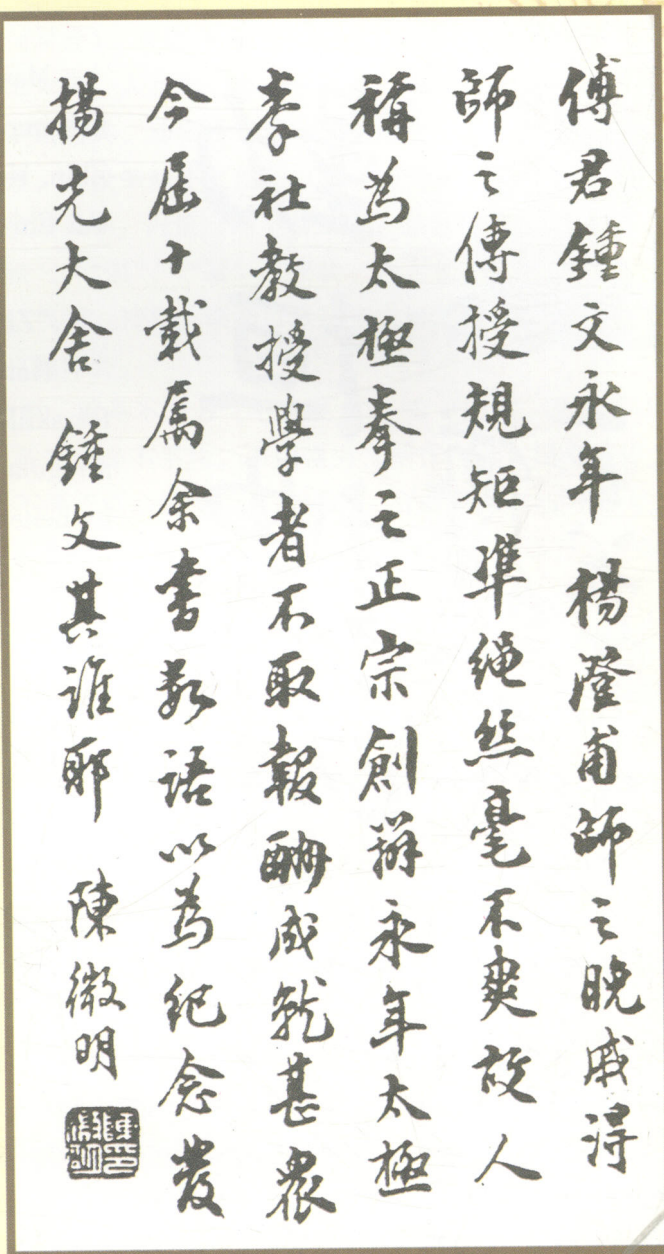 傅君鍾文永年 楊澄甫師之晚戚得
師之傳授規矩準繩丝毫不爽故人
稱爲太極拳之正宗創辦永年太極
拳社教授學者不取報酬成就甚衆
今屆十載属余書數語以爲紀念發
揚光大舍 鍾文其誰耶 陳微明